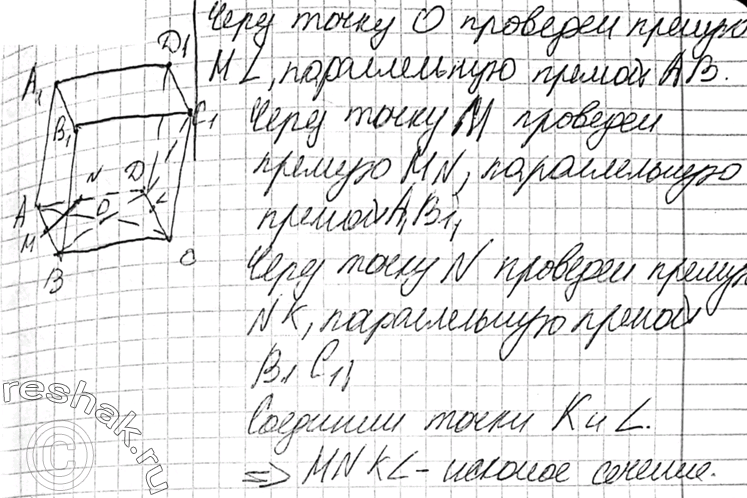 Через точку О проведем прямую
ML, параллельную прямой AB.
Через точку M проведем
прямую MN, параллельную
прямой A₁B₁,
Через точку N проведем прямую
NK, параллельную прямой
B₁C₁,
Соединим точки K и L.
=> MNKL - искомое сечение.
A₁
D₁
B₁
C₁
N
D
A
O
L
M
B
C
reshak.ru
©